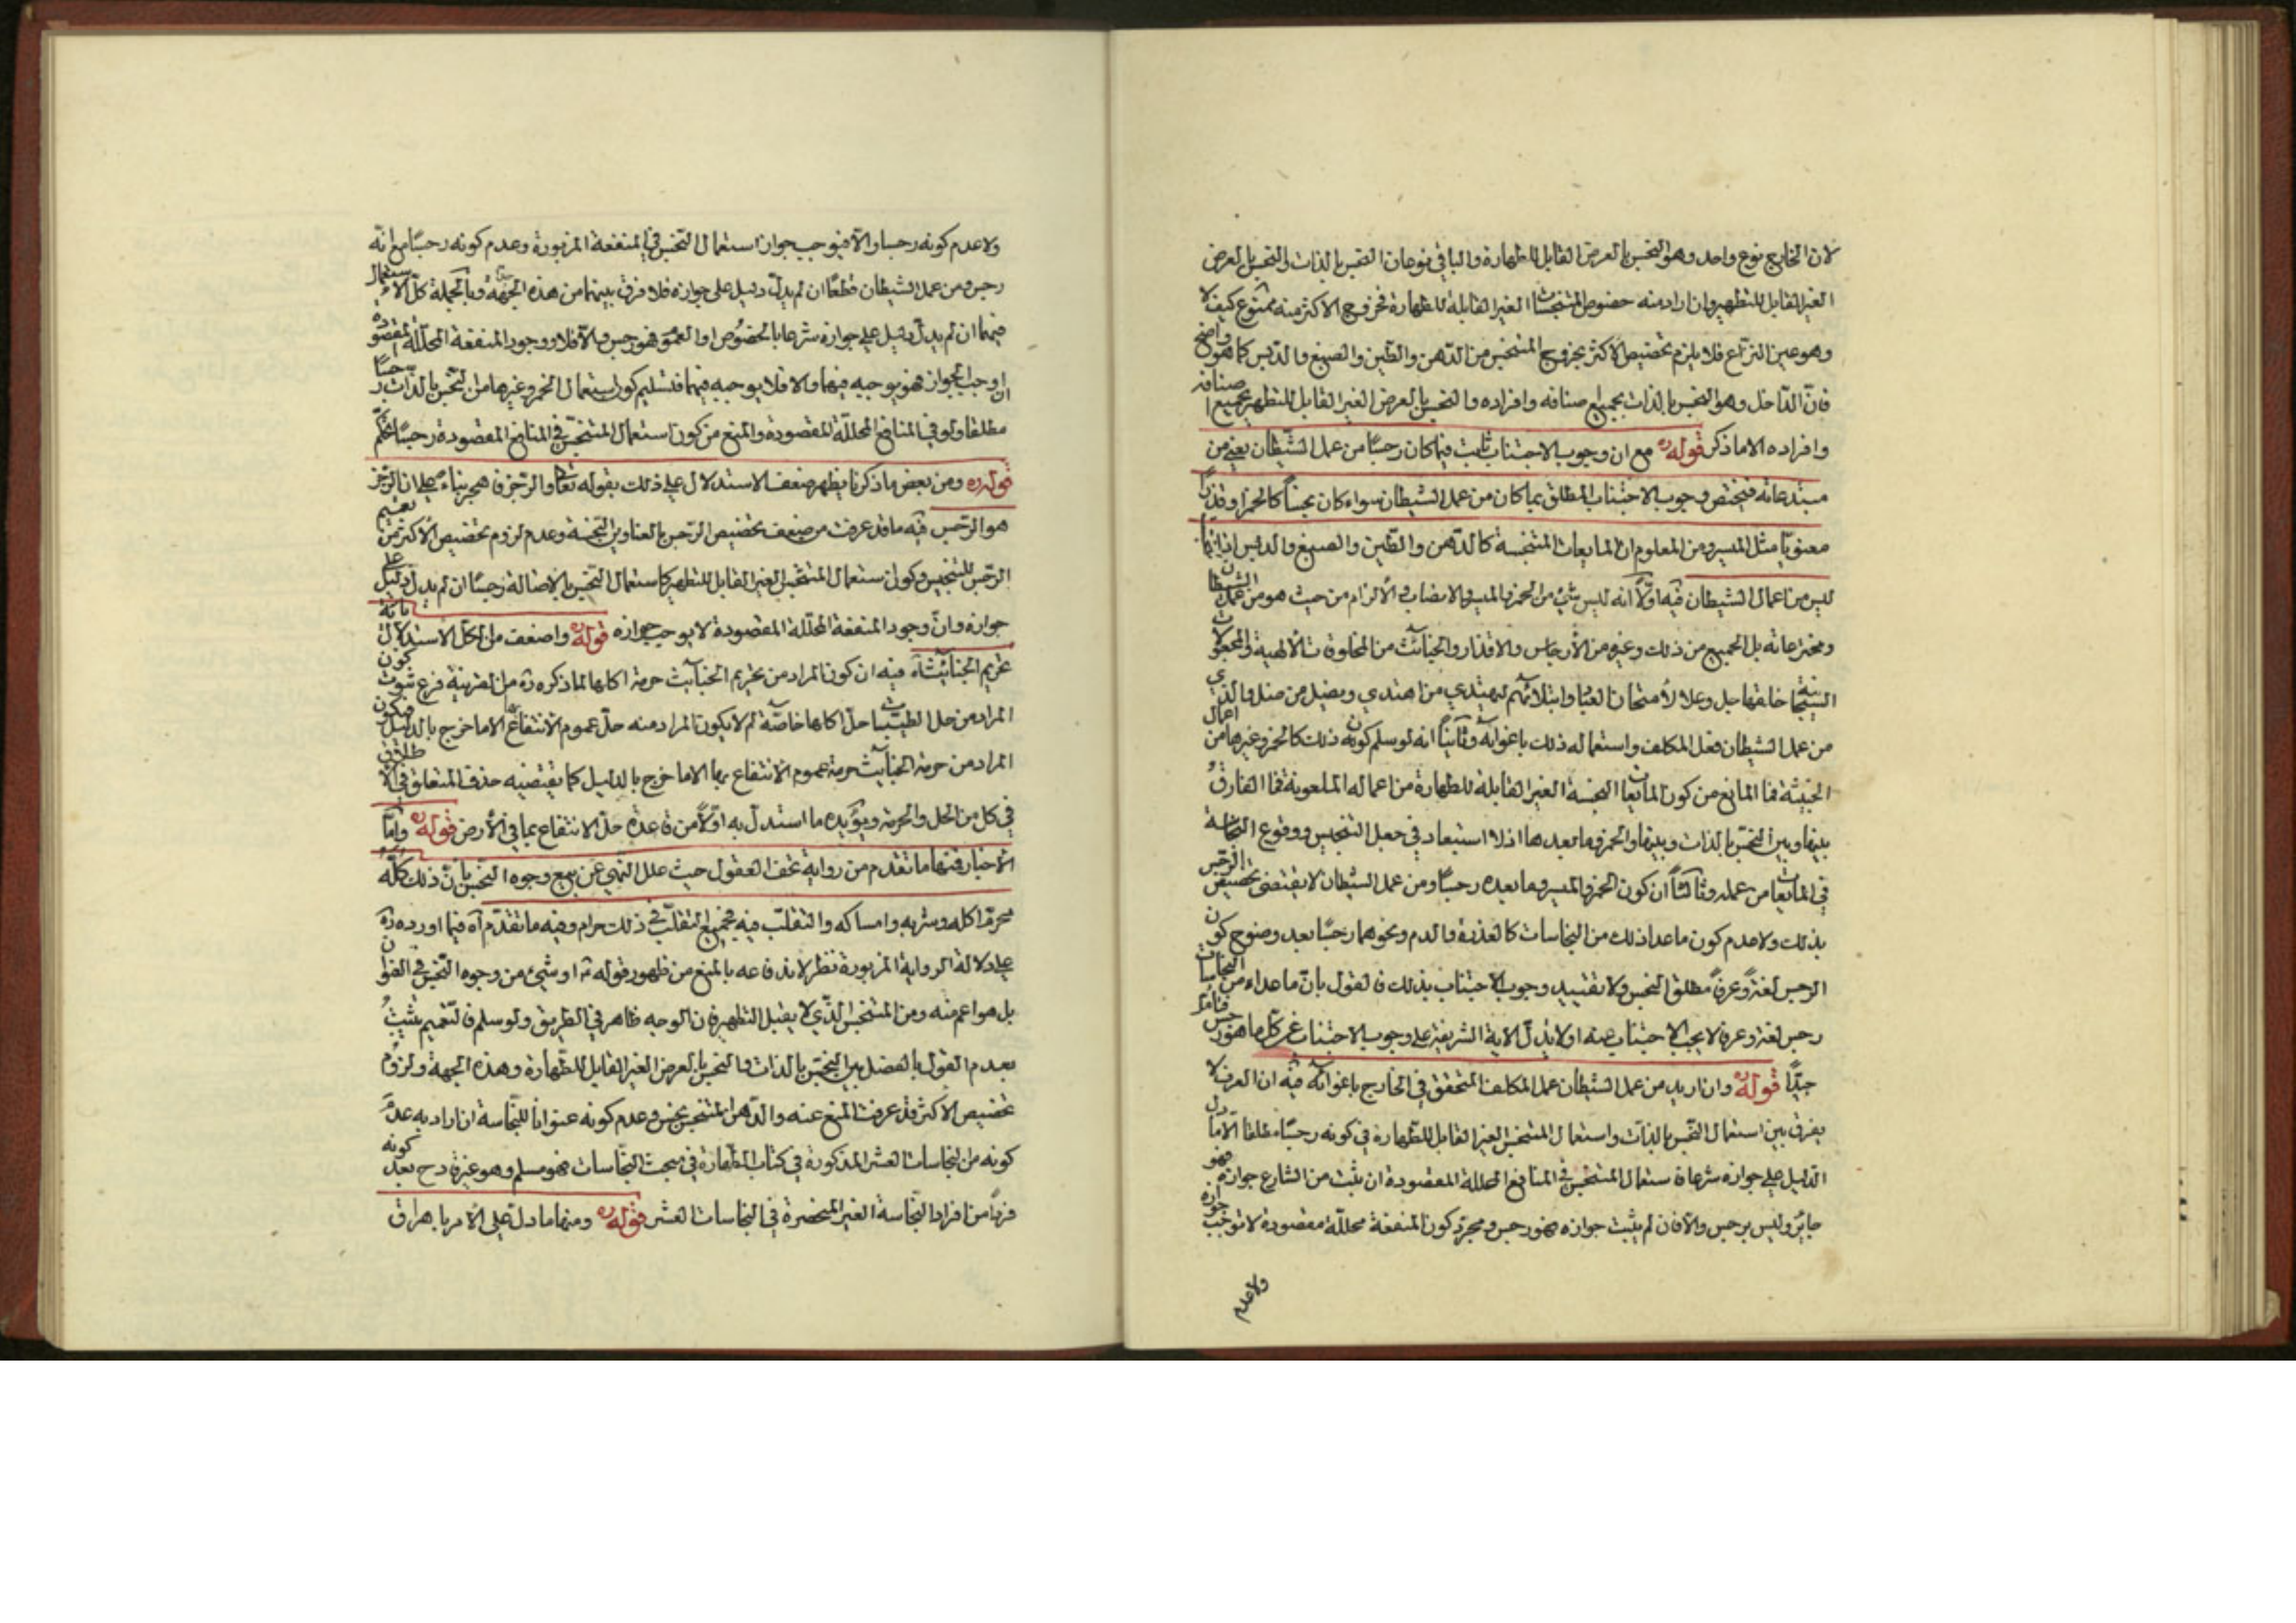 لان الخارج نوع واحد وهو النجس بالعرض القابل للطهارة والباقي نوعان النجس بالذات والنجس بالعرض
الغير القابل للتطهير وان اراد منه خصوص المتنجسات الغير القابلة للطهارة فخروج الاكثر منه ممنوع كيف لا
وهو عين النزاع فلا يلزم تخصيص الاكثر بخروج المتنجس من الدهن والطين والصبغ والدبس كما هو واضح
فان الداخل وهو النجس بالذات بجميع اصنافه وافراده والنجس بالعرض الغير القابل للتطهير بجميع اصنافه
وافراده الا ما ذكر قوله ره مع ان وجوب الاجتناب ثابت فيما كان رجسًا من عمل الشيطان يعني من
مبتدعاته فيختص وجوب الاجتناب المطلق بما كان من عمل الشيطان سواء كان نجسًا كالخمر او قذرًا
معنويًا مثل الميسر ومن المعلوم ان المايعات المتنجسة كالدهن والطين والصبغ والدبس اذا
ليس من اعمال الشيطان فيه اولًا انه ليس شيء من الخمر والميسر والانصاب والأزلام من حيث هو من عمل الشيطان
ومخترعاته بل الجميع من ذلك وغيره من الأرجاس والاقذار والخبائث من المخلوقات الالهية والمجعولات
خالقها جل وعلا لأمتحان العباد وابتلائهم ليهتدي من اهتدى ويضل من ضل والذي
من عمل الشيطان فعل المكلف واستعماله ذلك باغوائه وثانيًا انه لو سلم كون ذلك كالخمر وغيرها من اعمال
الخبيثة فما المانع من كون المايعات النجسة الغير القابلة للطهارة من اعماله الملعونة فما الفارق
بينها وبين النجس بالذات وبينها والخمر وما بعدها اذ لا استبعاد في جعل التنجيس ووقوع النجاسة
في المايعات من عمله وثالثًا ان كون الخمر والميسر وما بعده رجسًا ومن عمل الشيطان لا يقتضى تخصيص الرجس
بذلك ولا عدم كون ما عدا ذلك من النجاسات كالعذرة والدم ونحوهما رجسًا بعد وضوح كون
الرجس لغةً وعرفًا مطلق النجس ولا تقييد وجوب الاجتناب بذلك فالقول بان ما عداه من النجاسات
رجس لغة وعرفا لا يجب الاجتناب عنه او لا تدل الاية الشريفة على وجوب الاجتناب عن كل ما هو رجس فتامل
جيدًا قوله ره وان اريد من عمل الشيطان عمل المكلف المتحقق في الخارج باغوائه فيه ان العرف لا
يفرق بين استعمال النجس بالذات واستعمال المتنجس الغير القابل للطهارة في كونه رجسًا مطلقا الا ما دل
الدليل على جوازه شرعا فاستعمال المتنجس في المنافع المحللة المقصودة ان يثبت من الشارع جوازه فهو
جايز وليس برجس والا فان لم يثبت جوازه فهو رجس ومجرد كون المنفعة محللة مقصودة لا توجب جوازه
ولا عدم
ولا عدم كونه رجسا والا فيوجب جواز استعمال النجس في المنفعة المزبورة وعدم كونه رجسًا مع انه
رجس ومن عمل الشيطان قطعًا ان لم يدل دليل على جوازه فلا فرق بينهما من هذه الجهة وبالجملة كل الاستعمال
فيهما ان لم يدل دليل على جوازه شرعا بالخصوص او العموم فهو رجس والا فلا ووجود المنفعة المحللة المقصودة
ان اوجب الجواز فهو يوجبه فيهما والا فلا يوجبه فيهما فتسليم كون استعمال الخمر وغيرها من النجس بالذات رجسًا
مطلقا ولو في المنافع المحللة المقصودة والمنع من كون استعمال المتنجس في المنافع المقصودة رجسًا تحكم
قوله ره ومن بعض ما ذكرنا يظهر ضعف الاستدلال على ذلك بقوله تعالى والرجز فاهجر بناءً على ان الرجز
هو الرجس فيه ما قد عرفت من ضعف تخصيص الرجس بالعناوين النجسة وعدم لزوم تخصيص الأكثر من تعميم
الرجس للمتنجس وكون استعمال المتنجس الغير القابل للتطهير كاستعمال النجس بالاصالة رجسًا ان لم يدل دليل على
جوازه وان وجود المنفعة المحللة المقصودة لا يوجب جوازه قوله ره واضعف من الكل الاستدلال باية
تحريم الخبائث اه فيه ان كون المراد من تحريم الخبائث حرمة اكلها لما ذكره ره من القرينة فرع ثبوت كون
المراد من حل الطيبات حل اكلها خاصة لم لا يكون المراد منه حل عموم الانتفاع الا ما خرج بالدليل فيكون
المراد من حرمة الخبائث حرمة عموم الانتفاع بها الا ما خرج بالدليل كما يقتضيه حذف المتعلق في
في كل من الحل والحرمة ويؤيده ما استدل به اولًا من قاعدة حل الانتفاع بما في الأرض قوله ره وامّا
الأخبار فمنها ما تقدم من رواية تحف العقول حيث علل النهي عن بيع وجوه النجس بان ذلك كله
محرم اكله وشربه وامساكه والتقلب فيه فجميع التقلب في ذلك حرام وفيه ما تقدم اه فيما اورده ره
على دلالة الرواية المزبورة نظر لاندفاعه بالمنع من ظهور قوله ع او شيء من وجوه النجس في
بل هو اعم منه ومن المتنجس الذي لا يقبل التطهير فان الوجه ظاهر في الطريق ولو سلم فالتعميم يثبت
بعدم القول بالفصل بين النجس بالذات والنجس بالعرض الغير القابل للطهارة وهذه الجهة ولزوم
تخصيص الاكثر قد عرفت المنع عنه والدهن المتنجس نجس وعدم كونه عنوانا للنجاسة ان اراد به عدم
كونه من النجاسات العشر المذكورة في كتاب الطهارة في مبحث النجاسات فهو مسلم وهو غير قادح بعد كونه
فردًا من افراد النجاسة الغير المنحصرة في النجاسات العشر قوله ره ومنها ما دل على الأمر باهراق